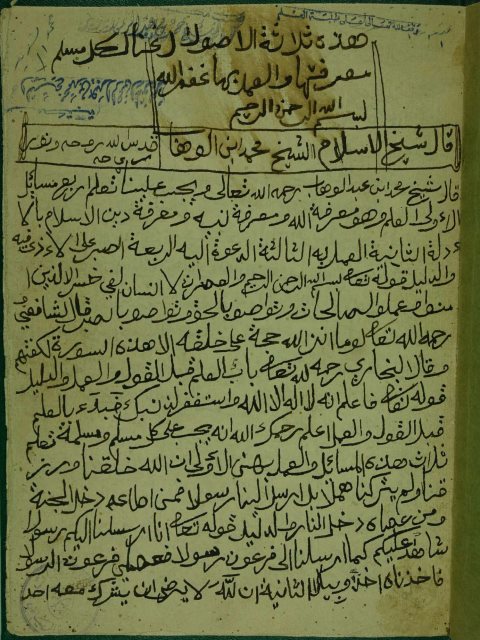 هذه ثلاثة الاصول يجب على كل مسلم
معرفتها والعمل بها غفر الله
بسم الله الرحمن الرحيم
قال شيخ الاسلام الشيخ محمد ابن الوهاب
قدس الله روحه ونور
ضريحه
قال شيخ محمد ابن عبد الوهاب رحمه الله تعالى ويجب علينا تعلم اربع مسائل
الاولى العلم وهو معرفة الله ومعرفة نبيه ومعرفة دين الاسلام بالا
دلة الثانية العمل به الثالثة الدعوة اليه الربعة الصبر على الاذى فيه
والدليل قوله تعالى بسم الله الرحمن الرحيم والعصر ان الانسان لفي خسر الا الذين ا
منوا وعملوا الصالحات وتواصوا بالحق وتواصوا بالصبر قال الشافعي
رحمه الله تعالى لو ما انزل الله حجة على خلقه الا هذه السورة لكفتهم
وقال البخاري رحمه الله تعالى باب العلم قبل القول والعمل والدليل
قوله تعالى فاعلم انه لا اله الا الله واستغفر لذنبك فبدء بالعلم
قبل القول والعمل اعلم رحمك الله انه يجب على كل مسلم ومسلمة تعلم
ثلاث هذه المسائل والعمل بهن الاولى ان الله خلقنا ورز
قنا ولم يتركنا هملا بل ارسل الينا رسولا فمن اطاعه دخل الجنة
ومن عصاه دخل النار والدليل قوله تعالى انا ارسلنا اليكم رسولا
شاهدا عليكم كما ارسلنا الى فرعون رسولا فعصى فرعون الرسول
فاخذناه اخذا وبيلا الثانية ان الله لا يرضى ان يشرك معه احد